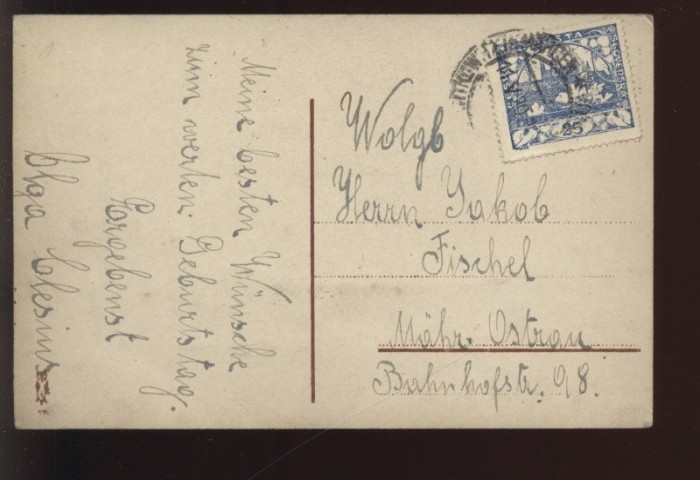 Meine besten Wünsche
zum werten Geburtstag.
Ergebenst
Olga
Wolgb
Herrn Jakob
Fischel
Mähr. Ostrau
Bahnhofstr. 98.
25